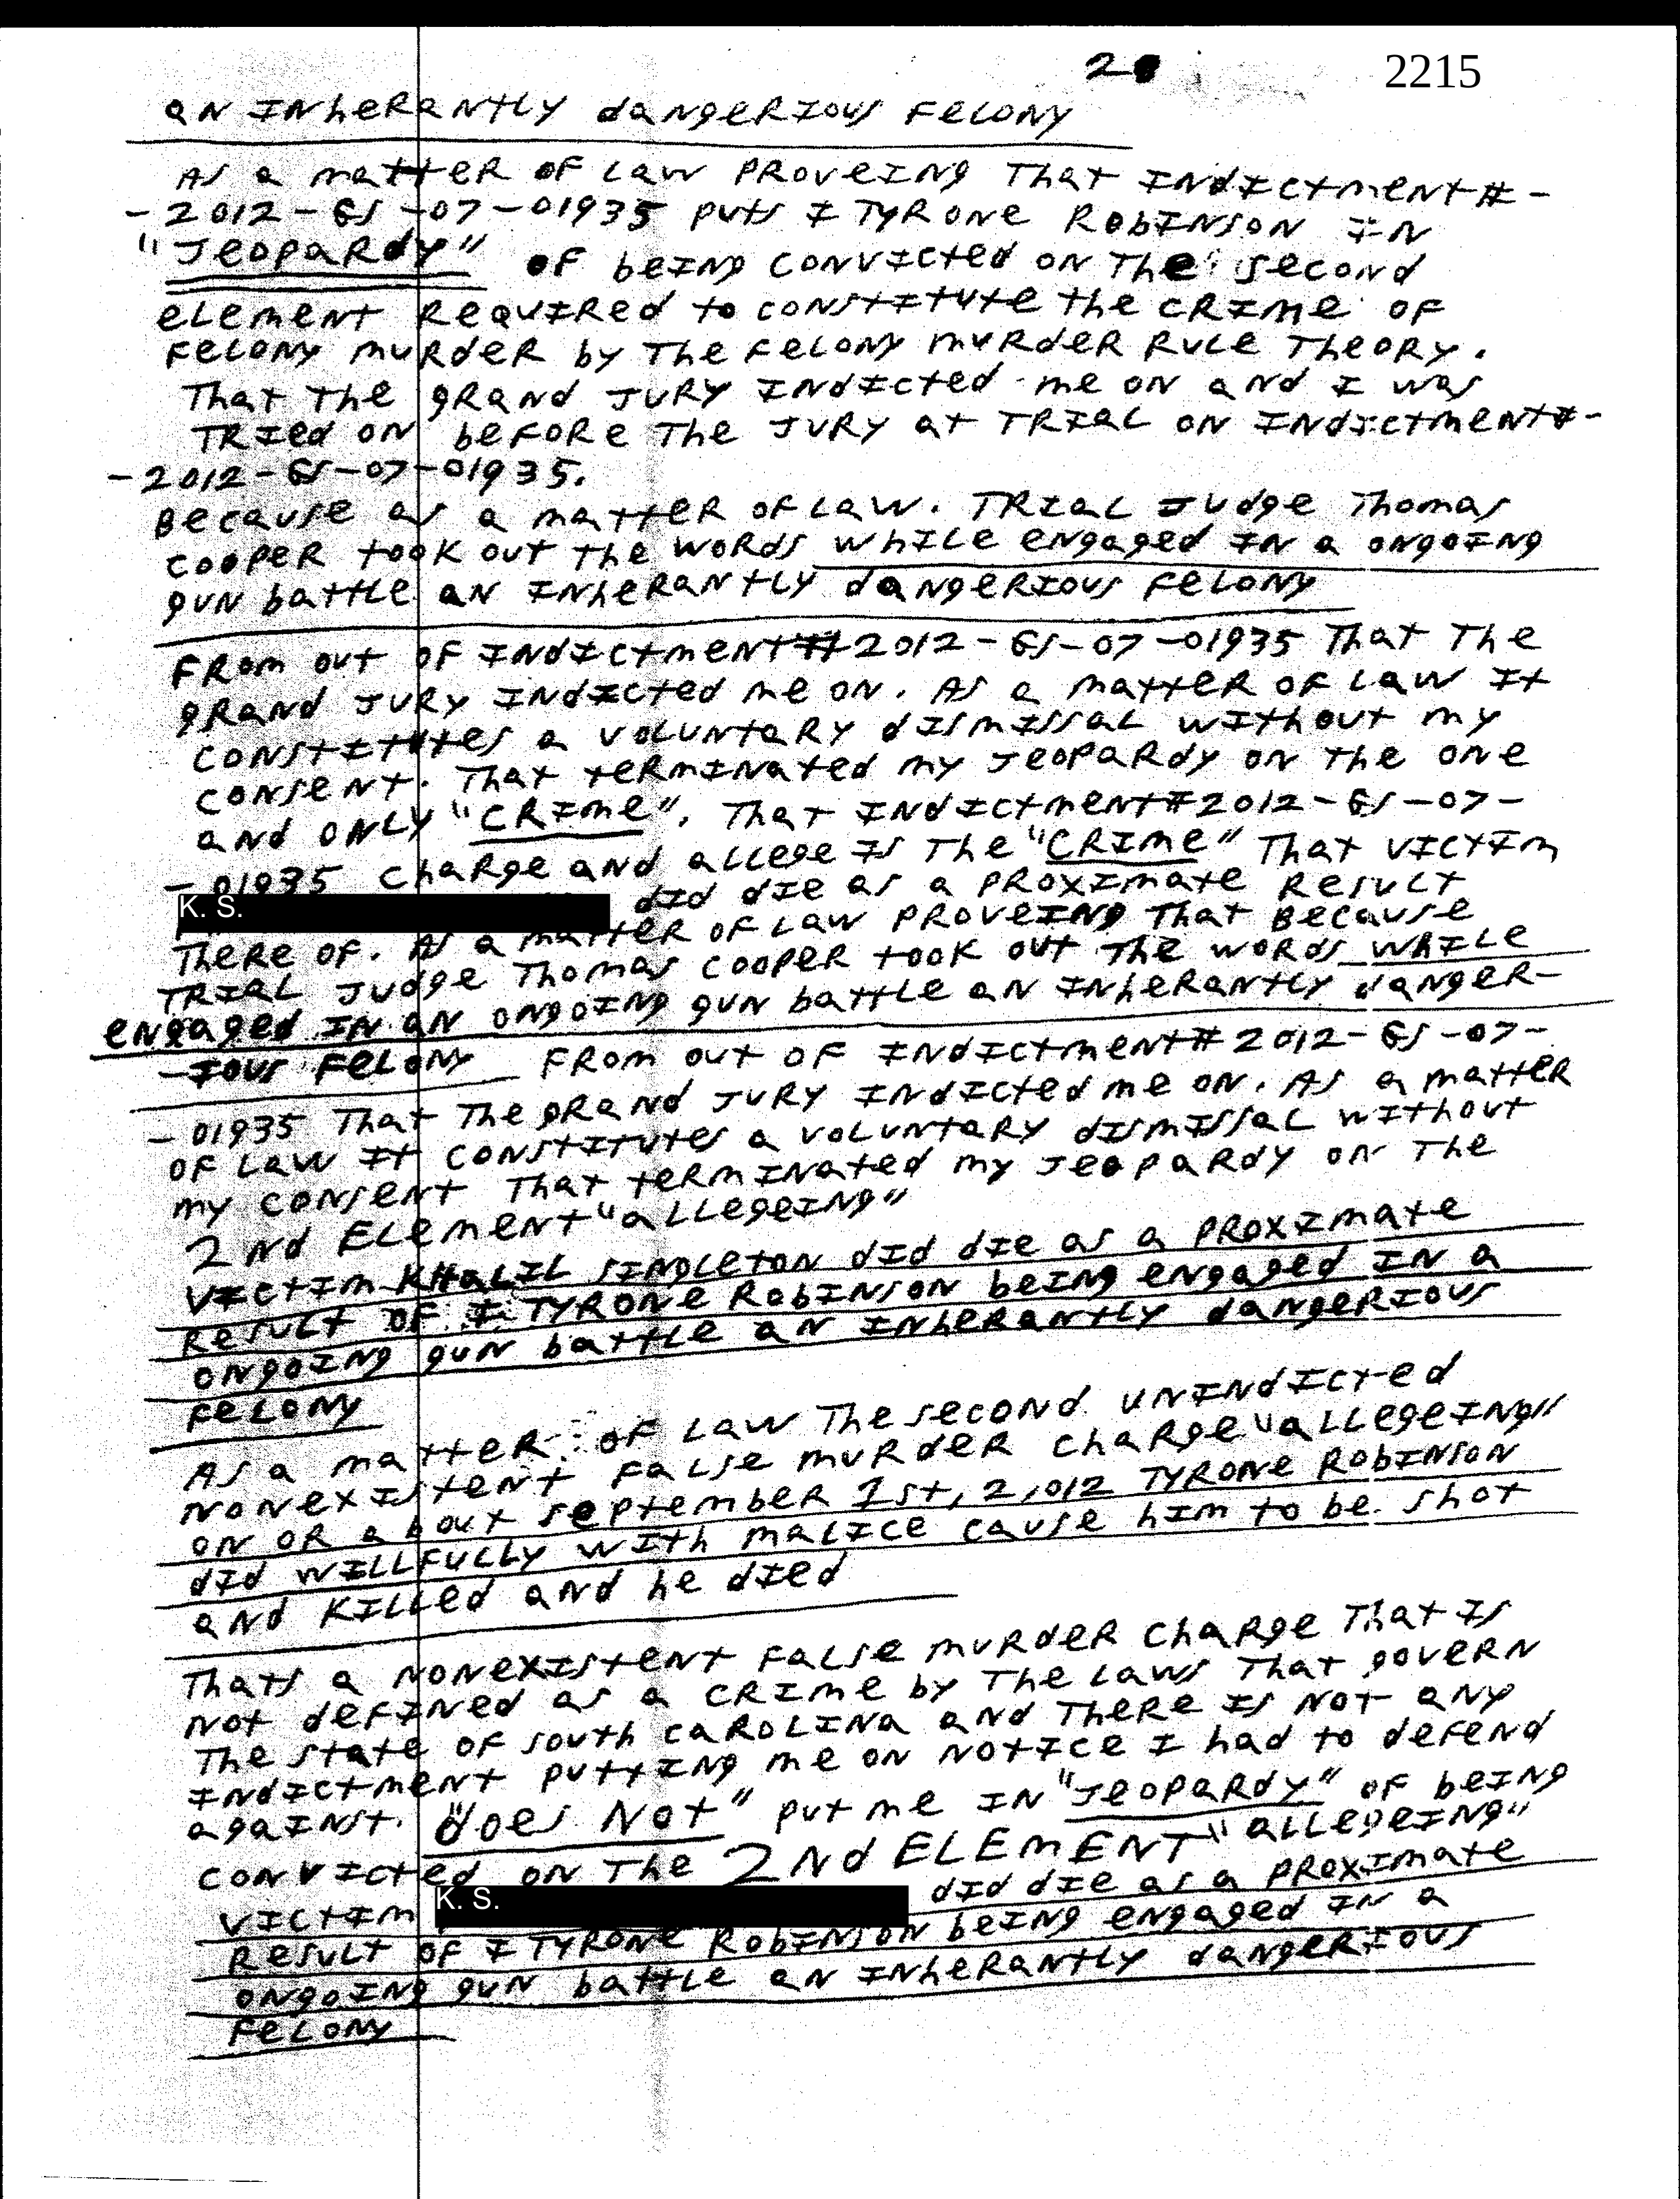 2215
an INheRantLy dangeRIous FeLony
As a matteR oF Law PRoveIng That IndIctment#-
-2012-GS-07-01935 puts I TyRone RobInson In
"Jeopardy" oF beIng convIcted on The second
eLement RequIRed to constItute the cRIme oF
FeLony muRdeR by The FeLony muRdeR RuLe TheoRy.
That the gRand JuRy IndIcted me on and I was
TRIed on beFoRe The JuRy at TRIaL on IndIctment#-
-2012-GS-07-01935.
Because as a matteR oF Law. TRIaL Judge Thomas
cooper took out the woRds whILe engaged In a ongoIng
gun battLe an InheRantLy dangeRIous FeLony
FRom out oF IndIctment#2012-GS-07-01935 That The
gRand JuRy IndIcted me on. As a matteR oF Law It
constItutes a voLuntaRy dIsmIssaL wIthout my
consent. That teRmInated my JeopaRdy on the one
and onLy "cRIme". That IndIctment#2012-GS-07-
-01935 chaRge and aLLege Is The "cRIme" That vIctIm
K. S. dId dIe as a pRoxImate ResuLt
TheRe oF. As a matteR oF Law pRoveIng That Because
TRIaL Judge Thomas cooper took out The woRds whILe
engaged In an ongoIng gun battLe an InheRantLy dangeR-
-Ious FeLony FRom out oF IndIctment#2012-GS-07-
-01935 That The gRand JuRy IndIcted me on. As a matteR
oF Law It constItutes a voLuntaRy dIsmIssaL wIthout
my consent That teRmInated my JeopaRdy on The
2nd ELement "aLLegeIng"
vIctIm KHaLIL sIngLeton dId dIe as a pRoxImate
ResuLt oF I TyRone RobInson beIng engaged In a
ongoIng gun battLe an InheRantLy dangeRIous
FeLony
As a matteR oF Law The second unIndIcted
nonexIstent FaLse muRdeR chaRge "aLLegeIng"
on oR about septembeR 1st, 2,012 TyRone RobInson
dId wILLFuLLy wIth maLIce cause hIm to be shot
and KILLed and he dIed
Thats a nonexIstent FaLse muRdeR chaRge That Is
not deFIned as a cRIme by The Laws That goveRn
The state oF south caRoLIna and TheRe Is not any
IndIctment puttIng me on notIce I had to deFend
agaInst. "does Not" put me In "JeopaRdy" oF beIng
convIcted on The 2Nd ELEmENT "aLLegeIng"
vIctIm K. S. dId dIe as a pRoxImate
ResuLt oF I TyRone RobInson beIng engaged In a
ongoIng gun battLe an InheRantLy dangeRIous
FeLony